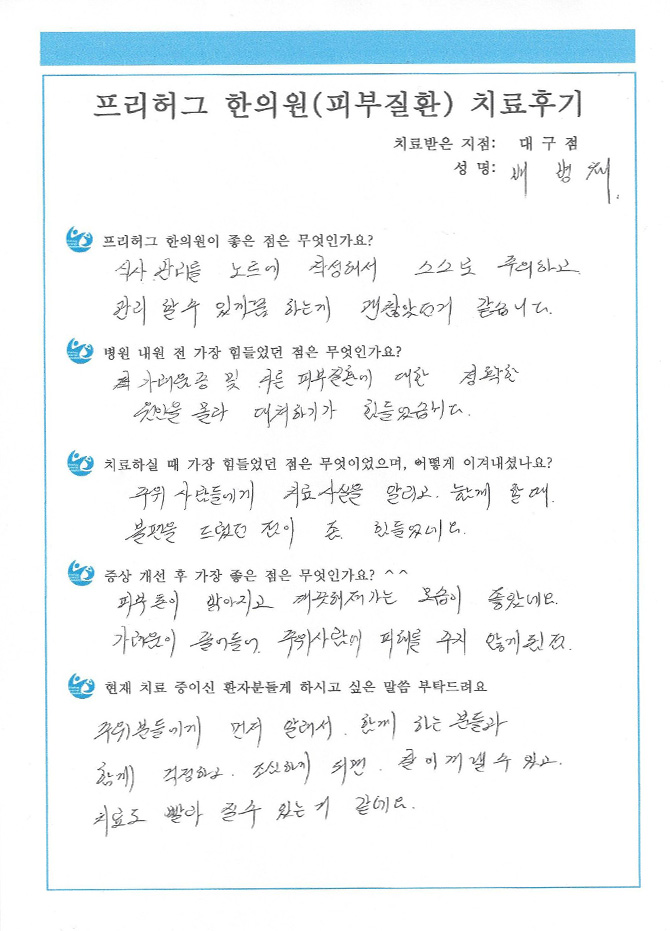 프리허그 한의원(피부질환) 치료후기
치료받은 지점: 대구점
성 명: 배 병 재.
프리허그 한의원이 좋은 점은 무엇인가요?
식사 관리를 노트에 작성해서 스스로 주의하고
관리 할수 있게끔 하는게 괜찮았던거 같습니다.
병원 내원 전 가장 힘들었던 점은 무엇인가요?
가려움증 및 다른 피부질환에 대한 정확한
원인을 몰라 대처하기가 힘들었습니다.
치료하실 때 가장 힘들었던 점은 무엇이었으며, 어떻게 이겨내셨나요?
주위 사람들에게 치료사실을 알리고. 함께 할때.
불편을 드렸던 점이 좀. 힘들었네요.
증상 개선 후 가장 좋은 점은 무엇인가요? ^^
피부톤이 밝아지고 깨끗해져가는 모습이 좋았네요.
가려움이 줄어들어, 주위사람에 피해를 주지 않게된점.
현재 치료 중이신 환자분들게 하시고 싶은 말씀 부탁드려요
주위분들에게 먼저 알려서. 함께 하는 분들과
함께 걱정하고. 조심하게 되면. 잘 이겨 낼 수 있고.
치료도 빨라 질수 있는거 같네요.